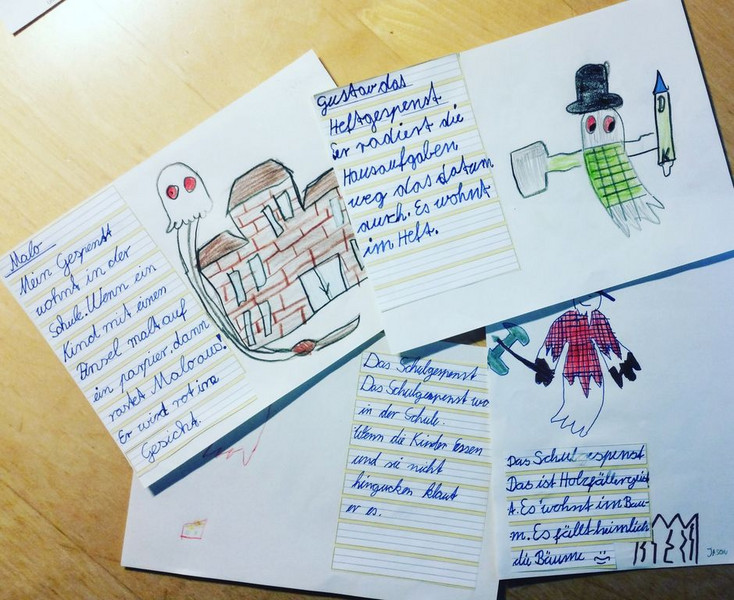 Malo
Mein Gespenst
wohnt in der
Schule. Wenn ein
Kind mit einen
Pinsel malt auf
ein papier, dann
rastet Malo aus!
Er wird rot im
Gesicht.
Gustav das
Heftgespenst
Er radiert die
Hausaufgaben
weg das datum
auch. Es wohnt
im Heft.
Das Schulgespenst
Das Schulgespenst wo
in der Schule.
Wenn die Kinder Essen
und sie nicht
hingucken klaut
er es.
Das Schul espenst
Das ist Holzfällergeist
A. Es wohnt im Bau-
m. Es fällt heimlich
die Bäume
JASON